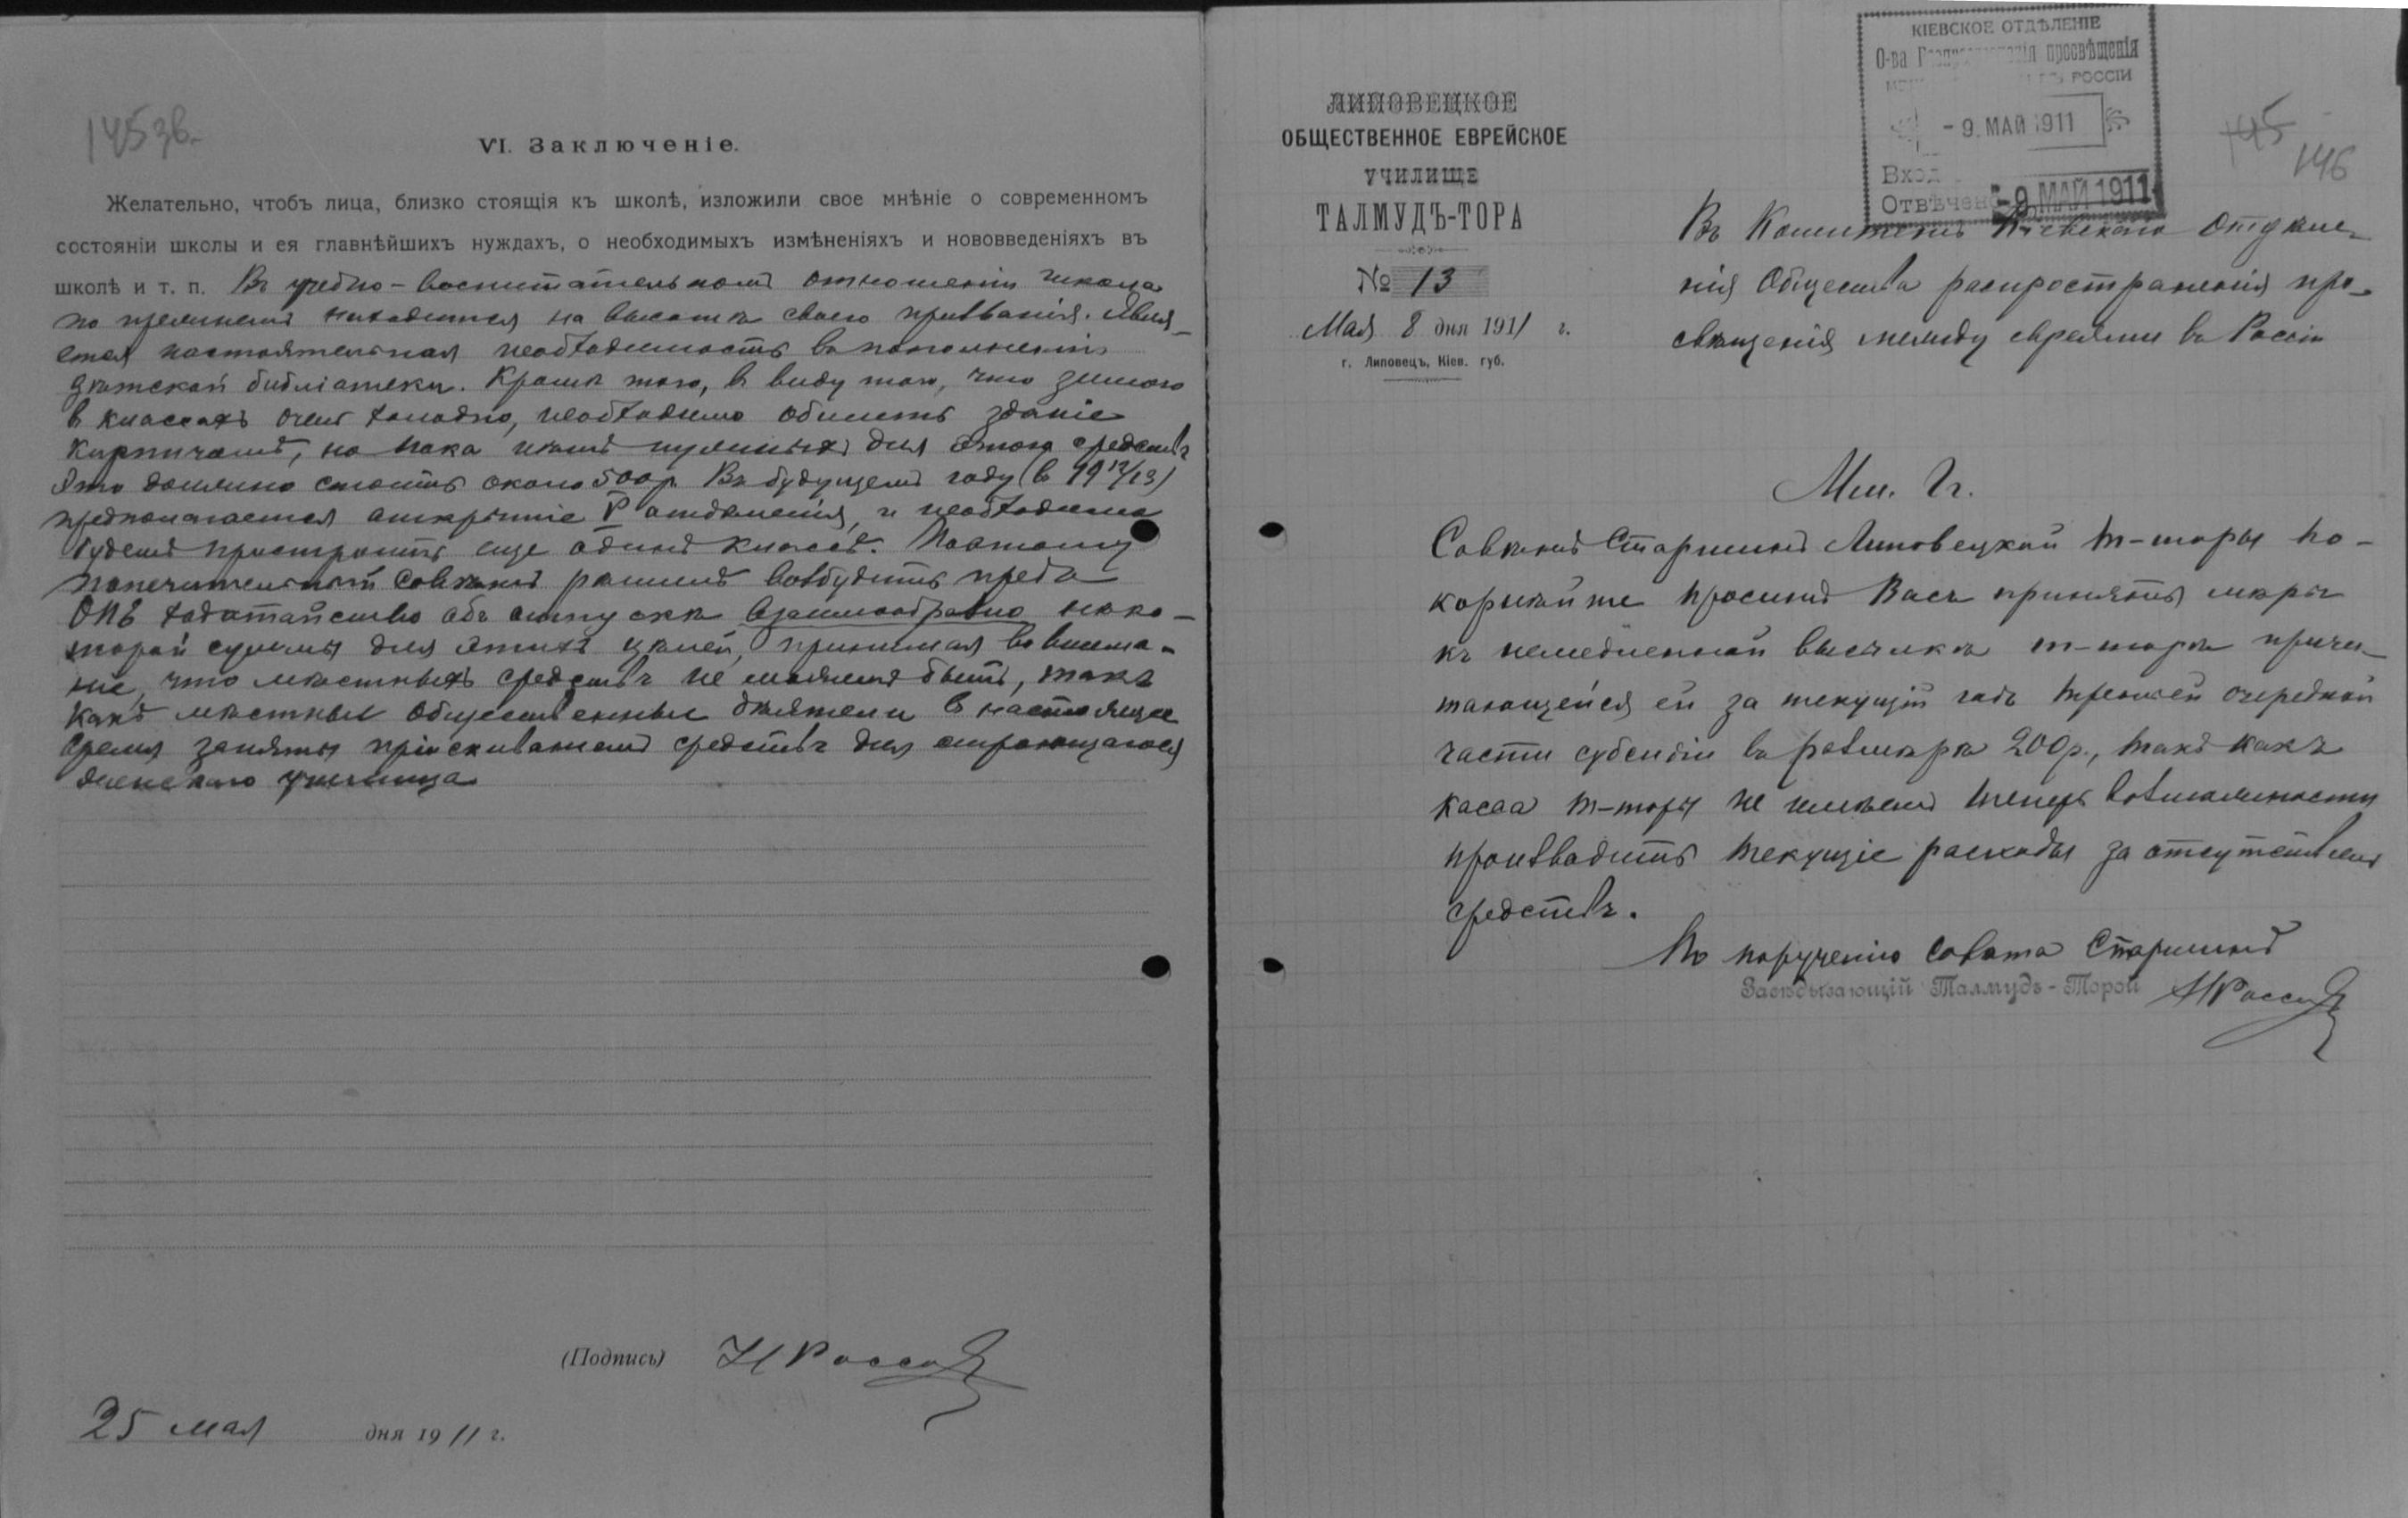 145 зв.
VI. Заключеніе.
Желательно, чтобъ лица, близко стоящія къ школѣ, изложили свое мнѣніе о современномъ
состояніи школы и ея главнѣйшихъ нуждахъ, о необходимыхъ измѣненіяхъ и нововведеніяхъ въ
школѣ и т. п. Въ учебно-воспитательномъ отношеніи школа
по прежнему находится на высотѣ своего призванія. Явля-
ется настоятельная необходимость въ пополненіи
дѣтской библіотеки. Кромѣ того, въ виду того, что зимою
в классахъ очень холодно, необходимо обложить зданіе
кирпичомъ, но пока нѣтъ нужныхъ для этого средствъ
Это должно стоить около 500 р. Въ будущемъ году (в 1912/13)
предполагается открытіе V отдѣленія, и необходимо
будетъ пристроить еще одинъ классъ. Поэтому
попечительный Совѣтъ рѣшилъ возбудить предъ
ОПЕ ходатайство объ отпускѣ взаимообразно нѣко-
торой суммы для этихъ цѣлей, принимая во внима-
ніе, что мѣстныхъ средствъ не можетъ быть, такъ
какъ мѣстные общественные дѣятели в настоящее
время заняты пріисканіемъ средствъ для строющагося
женскаго училища
(Подпись) Н Росс
25 мая дня 1911 г.
КІЕВСКОЕ ОТДѢЛЕНІЕ
О-ва просвѣщенія
РОССІИ
- 9. МАЙ 1911
Вход
Отвѣчено - 9 МАЙ 1911
145
146
ЛИПОВЕЦКОЕ
ОБЩЕСТВЕННОЕ ЕВРЕЙСКОЕ
УЧИЛИЩЕ
ТАЛМУДЪ-ТОРА
№ 13
Мая 8 дня 1911 г.
г. Липовецъ, Кіев. губ.
Въ Комитетъ Кіевскаго Отдѣле-
нія Общества распространенія про-
свѣщенія между евреями въ Россіи
Мм. Гг.
Совѣтъ Старшинъ Липовецкой т-торы по-
корнѣйше проситъ Васъ принять мѣры
къ немедленной высылкѣ т-торѣ причи-
тающейся ей за текущій годъ третьей очередной
части субсидіи въ размѣрѣ 200 р., такъ какъ
касса т-торы не имѣетъ теперь возможности
производить текущіе расходы за отсутствіемъ
средствъ.
По порученію Совѣта Старшинъ
Завѣдывающій Талмудъ-Торой Н Росс